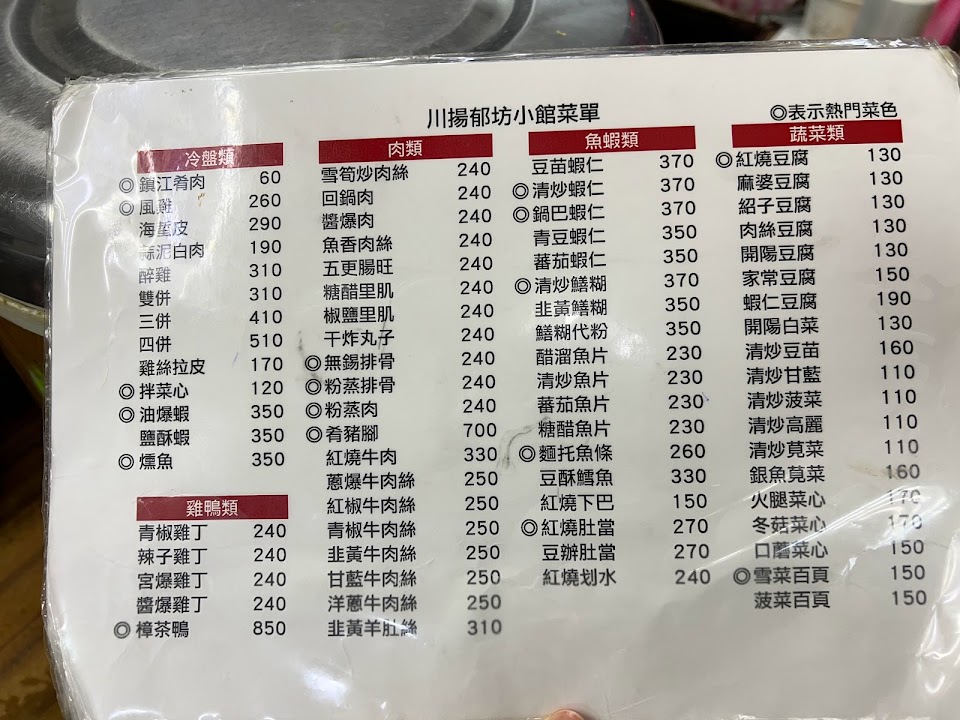 川揚郁坊小館菜單
◎表示熱門菜色
冷盤類
◎鎮江肴肉 60
◎風雞 260
海蜇皮 290
蒜泥白肉 190
醉雞 310
雙併 310
三併 410
四併 510
雞絲拉皮 170
◎拌菜心 120
◎油爆蝦 350
鹽酥蝦 350
◎燻魚 350
雞鴨類
青椒雞丁 240
辣子雞丁 240
宮爆雞丁 240
醬爆雞丁 240
◎樟茶鴨 850
肉類
雪筍炒肉絲 240
回鍋肉 240
醬爆肉 240
魚香肉絲 240
五更腸旺 240
糖醋里肌 240
椒鹽里肌 240
干炸丸子 240
◎無錫排骨 240
◎粉蒸排骨 240
◎粉蒸肉 240
◎肴豬腳 700
紅燒牛肉 330
蔥爆牛肉絲 250
紅椒牛肉絲 250
青椒牛肉絲 250
韭黃牛肉絲 250
甘藍牛肉絲 250
洋蔥牛肉絲 250
韭黃羊肚絲 310
魚蝦類
豆苗蝦仁 370
◎清炒蝦仁 370
◎鍋巴蝦仁 370
青豆蝦仁 350
蕃茄蝦仁 350
◎清炒鱔糊 370
韭黃鱔糊 350
鱔糊代粉 350
醋溜魚片 230
清炒魚片 230
蕃茄魚片 230
糖醋魚片 230
◎麵托魚條 260
豆酥鱈魚 330
紅燒下巴 150
◎紅燒肚當 270
豆辦肚當 270
紅燒划水 240
蔬菜類
◎紅燒豆腐 130
麻婆豆腐 130
紹子豆腐 130
肉絲豆腐 130
開陽豆腐 130
家常豆腐 150
蝦仁豆腐 190
開陽白菜 130
清炒豆苗 160
清炒甘藍 110
清炒菠菜 110
清炒高麗 110
清炒莧菜 110
銀魚莧菜 160
火腿菜心 170
冬菇菜心 170
口蘑菜心 150
◎雪菜百頁 150
菠菜百頁 150